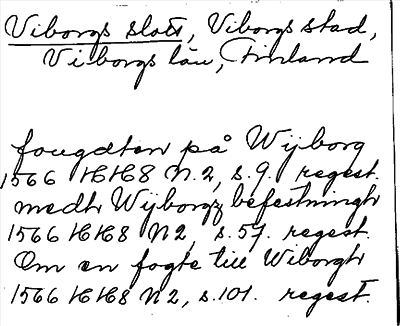 Viborgs slott, Viborgs stad,
Viborgs län, Finland
fougdten på Wijborg
1566 HH8 N. 2, s. 9. regest.
medh Wijborgz befestningh
1566 HH8 N 2, s. 57. regest.
Om en fogte till Wiborgh
1566 HH8 N 2, s. 101. regest.